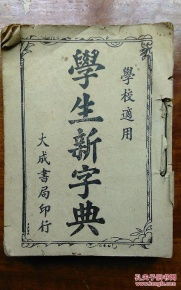 學校適用
學生新字典
大成書局印行